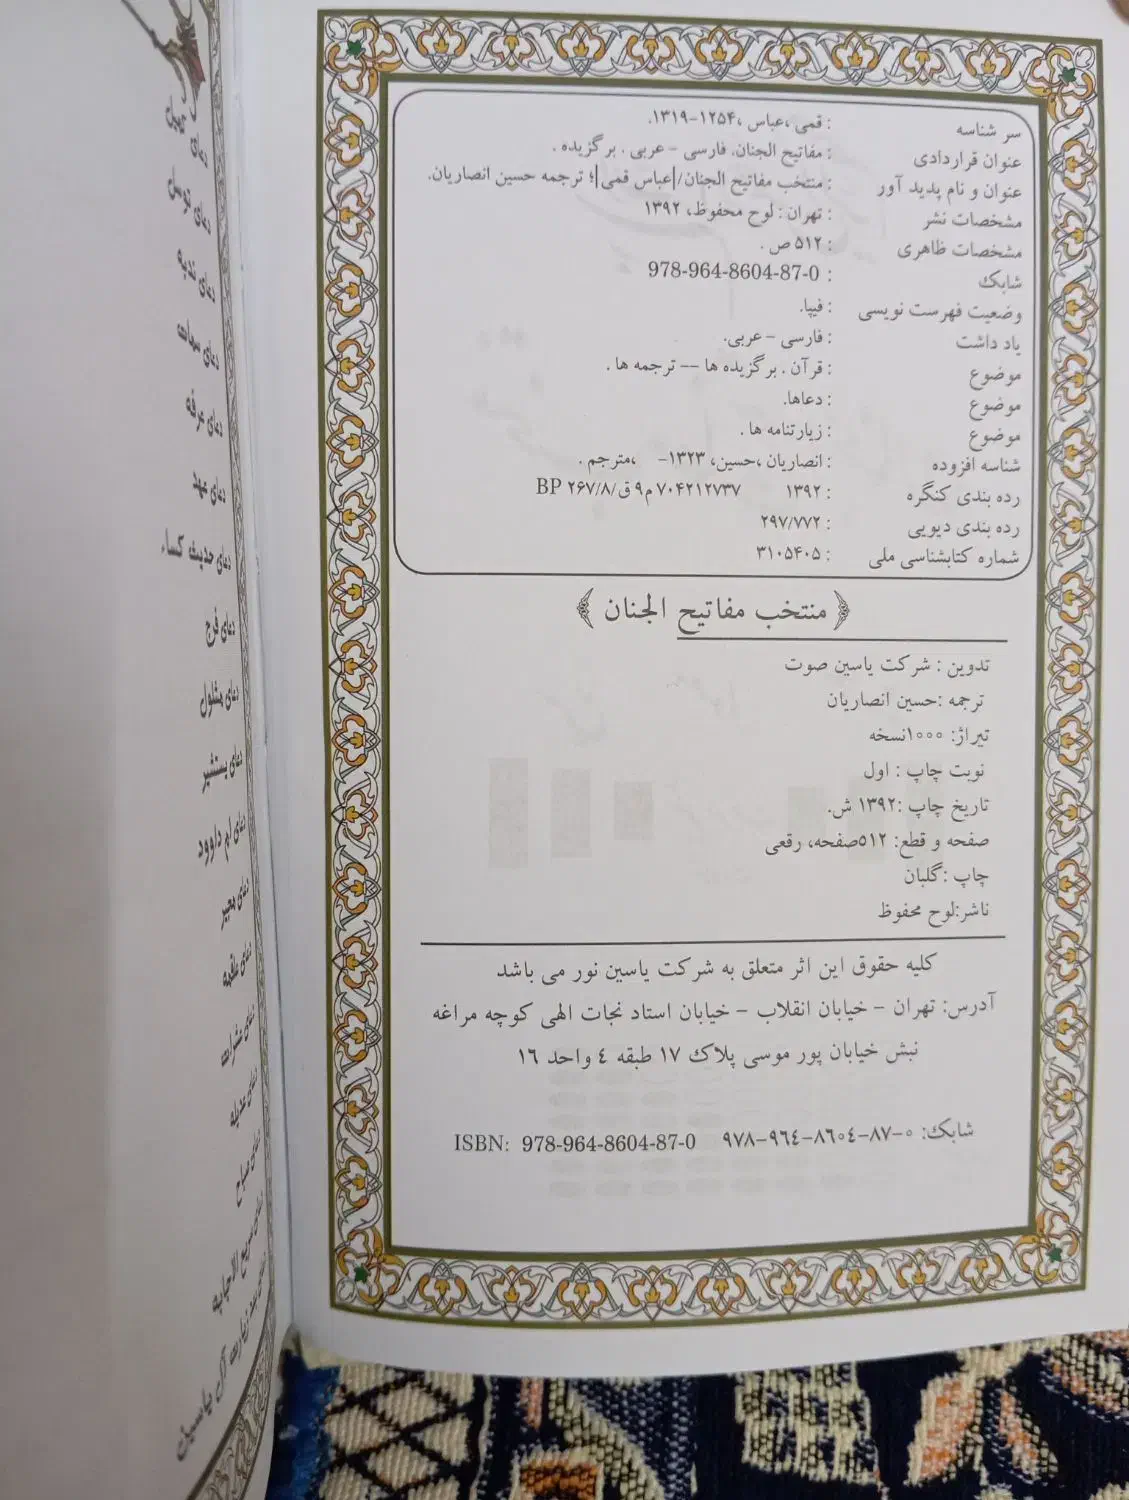 سر شناسه : قمی ،عباس ،۱۲۵۴-۱۳۱۹.
عنوان قراردادی : مفاتیح الجنان. فارسی - عربی . برگزیده .
عنوان و نام پدید آور : منتخب مفاتیح الجنان/|عباس قمی|؛ ترجمه حسین انصاریان.
مشخصات نشر : تهران : لوح محفوظ، ۱۳۹۲
مشخصات ظاهری : ۵۱۲ ص .
شابک : 978-964-8604-87-0
وضعیت فهرست نویسی : فیپا.
یاد داشت : فارسی - عربی.
موضوع : قرآن . برگزیده ها -- ترجمه ها .
موضوع : دعاها.
موضوع : زیارتنامه ها .
شناسه افزوده : انصاریان ،حسین، ۱۳۲۳- ،مترجم .
رده بندی کنگره : ۱۳۹۲ ۷۰۴۲۱۲۷۳۷ م۹ ق/۲۶۷/۸ BP
رده بندی دیویی : ۲۹۷/۷۷۲
شماره کتابشناسی ملی : ۳۱۰۵۴۰۵
﴿ منتخب مفاتیح الجنان ﴾
تدوین : شرکت یاسین صوت
ترجمه :حسین انصاریان
تیراژ: ۱۰۰۰نسخه
نوبت چاپ : اول
تاریخ چاپ :۱۳۹۲ ش.
صفحه و قطع: ۵۱۲صفحه، رقعی
چاپ :گلبان
ناشر:لوح محفوظ
کلیه حقوق این اثر متعلق به شرکت یاسین نور می باشد
آدرس: تهران - خیابان انقلاب - خیابان استاد نجات الهی کوچه مراغه
نبش خیابان پور موسی پلاک ۱۷ طبقه ٤ واحد ۱٦
شابک: ۹۷۸-۹٦٤-۸٦۰٤-۸۷-۰ ISBN: 978-964-8604-87-0
دعای کمیل
دعای توسل
دعای ندبه
دعای سمات
دعای عرفه
دعای عهد
دعای حدیث کساء
دعای فرج
دعای مشلول
دعای یستشیر
دعای ام داوود
دعای مجیر
دعای علقمه
دعای عشرات
دعای عدیله
دعای صباح
دعای سریع الاجابه
زیارت آل یاسین